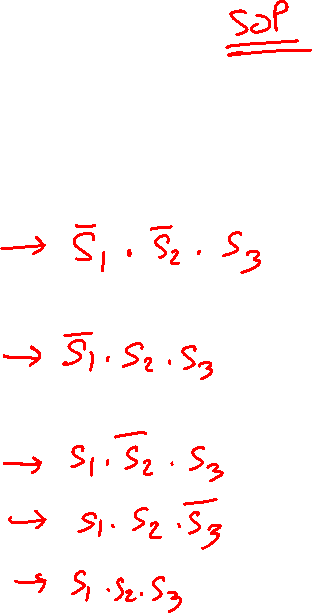 SOP
→ S̅₁ . S̅₂ . S₃
→ S̅₁ . S₂ . S₃
→ S₁ . S̅₂ . S₃
→ S₁ . S₂ . S̅₃
→ S₁ . S₂ . S₃